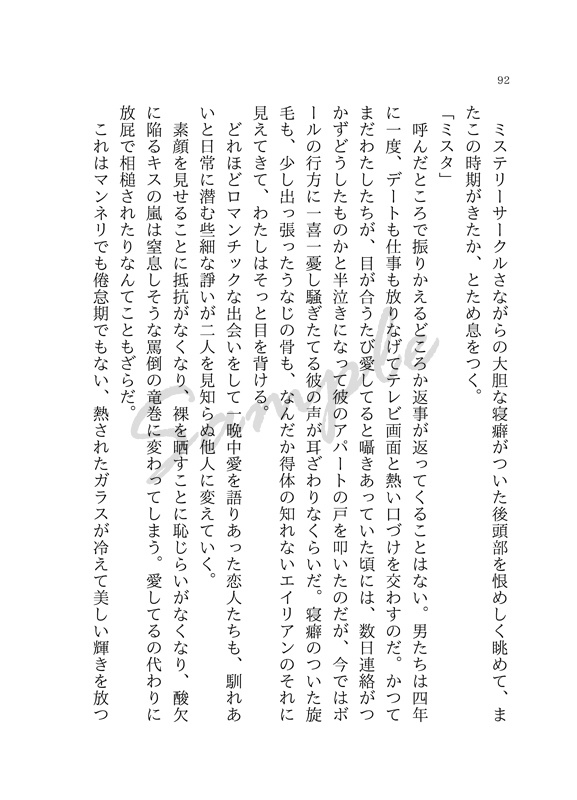 92
ミステリーサークルさながらの大胆な寝癖がついた後頭部を恨めしく眺めて、ま
たこの時期がきたか、とため息をつく。
「ミスタ」
呼んだところで振りかえるどころか返事が返ってくることはない。男たちは四年
に一度、デートも仕事も放りなげてテレビ画面と熱い口づけを交わすのだ。かつて
まだわたしたちが、目が合うたび愛してると囁きあっていた頃には、数日連絡がつ
かずどうしたものかと半泣きになって彼のアパートの戸を叩いたのだが、今ではボ
ールの行方に一喜一憂し騒ぎたてる彼の声が耳ざわりなくらいだ。寝癖のついた旋
毛も、少し出っ張ったうなじの骨も、なんだか得体の知れないエイリアンのそれに
見えてきて、わたしはそっと目を背ける。
どれほどロマンチックな出会いをして一晩中愛を語りあった恋人たちも、馴れあ
いと日常に潜む些細な諍いが二人を見知らぬ他人に変えていく。
素顔を見せることに抵抗がなくなり、裸を晒すことに恥じらいがなくなり、酸欠
に陥るキスの嵐は窒息しそうな罵倒の竜巻に変わってしまう。愛してるの代わりに
放屁で相槌されたりなんてこともざらだ。
これはマンネリでも倦怠期でもない、熱されたガラスが冷えて美しい輝きを放つ
Sample